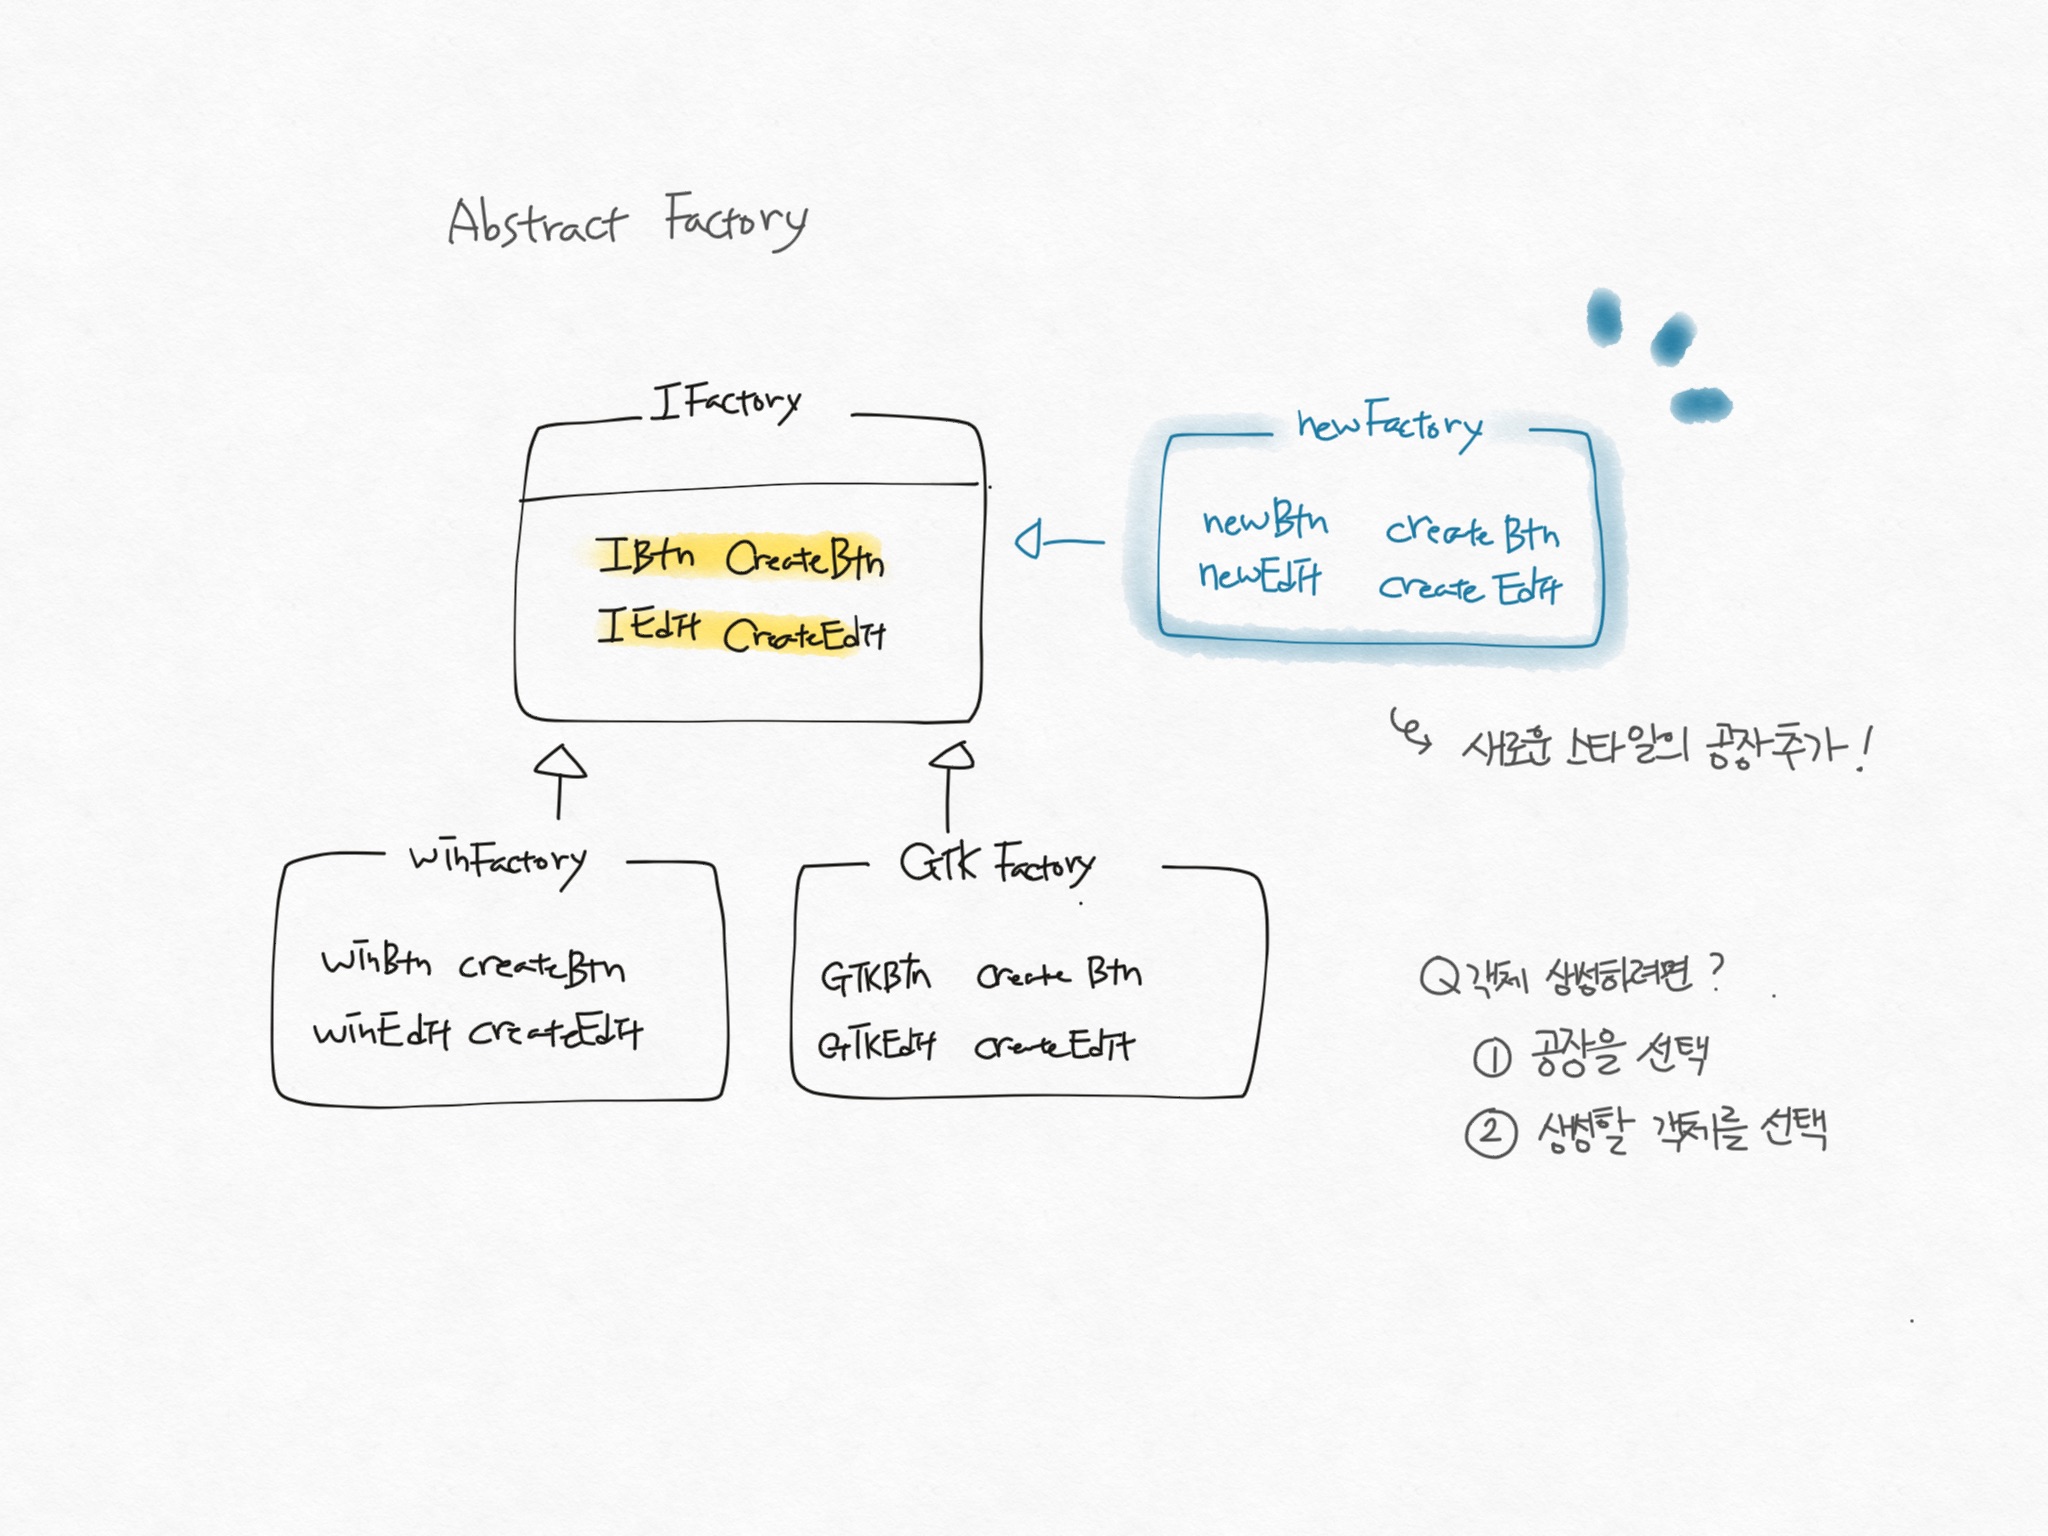 Abstract Factory
IFactory
IBtn CreateBtn
IEdit CreateEdit
newFactory
newBtn createBtn
newEdit createEdit
새로운 스타일의 공장추가!
winFactory
winBtn createBtn
winEdit createEdit
GTK Factory
GTKBtn create Btn
GTKEdit createEdit
Q 객체 생성하려면?
① 공장을 선택
② 생성할 객체를 선택